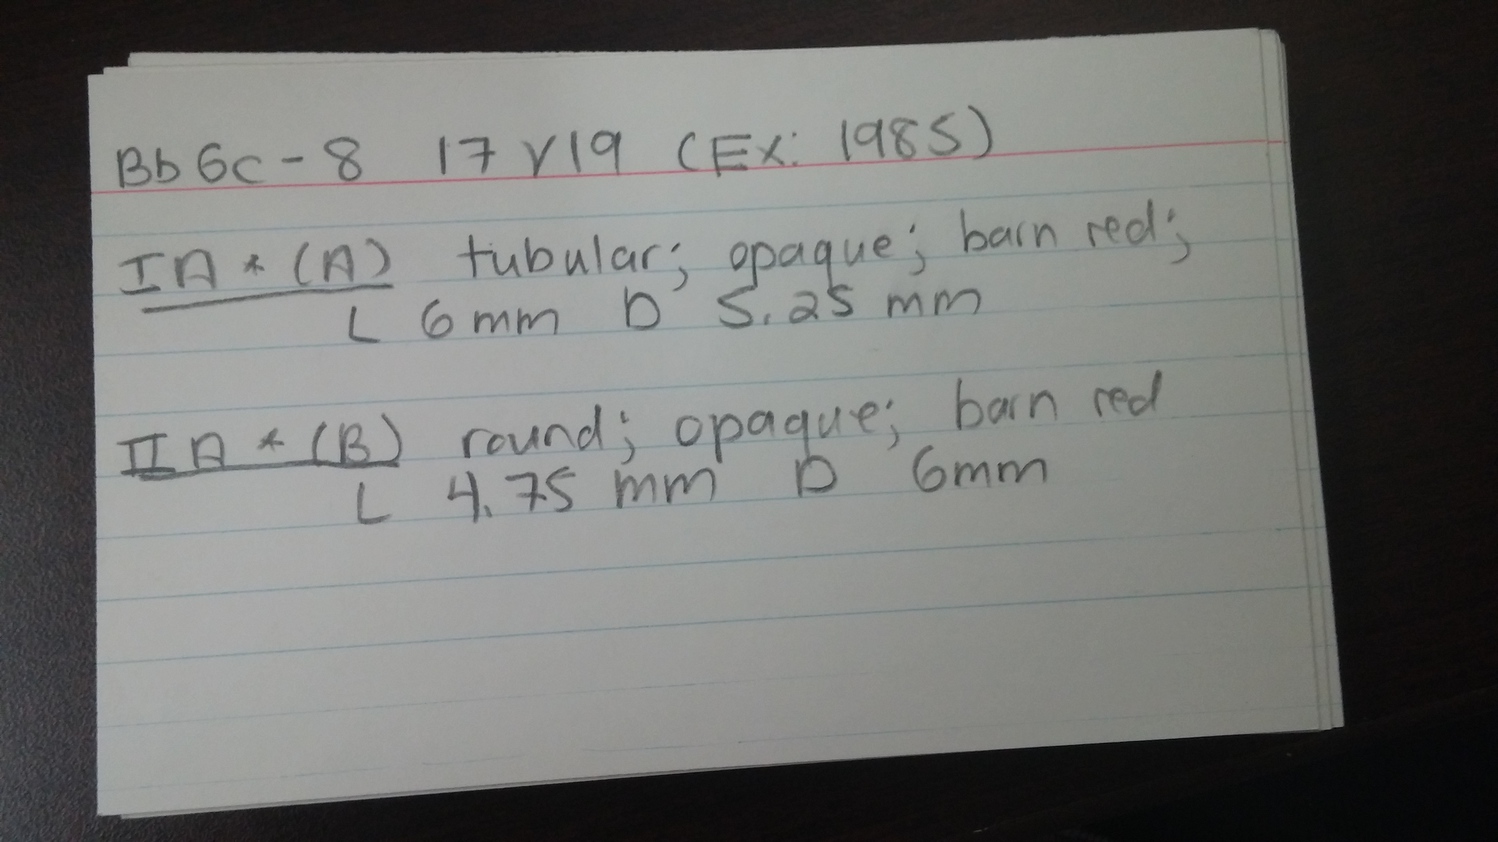 Bb Gc - 8 17 Y19 (Ex: 1985)
IA * (A) tubular; opaque; barn red;
L 6mm D 5.25 mm
IIA * (B) round; opaque; barn red
L 4.75 mm D 6mm